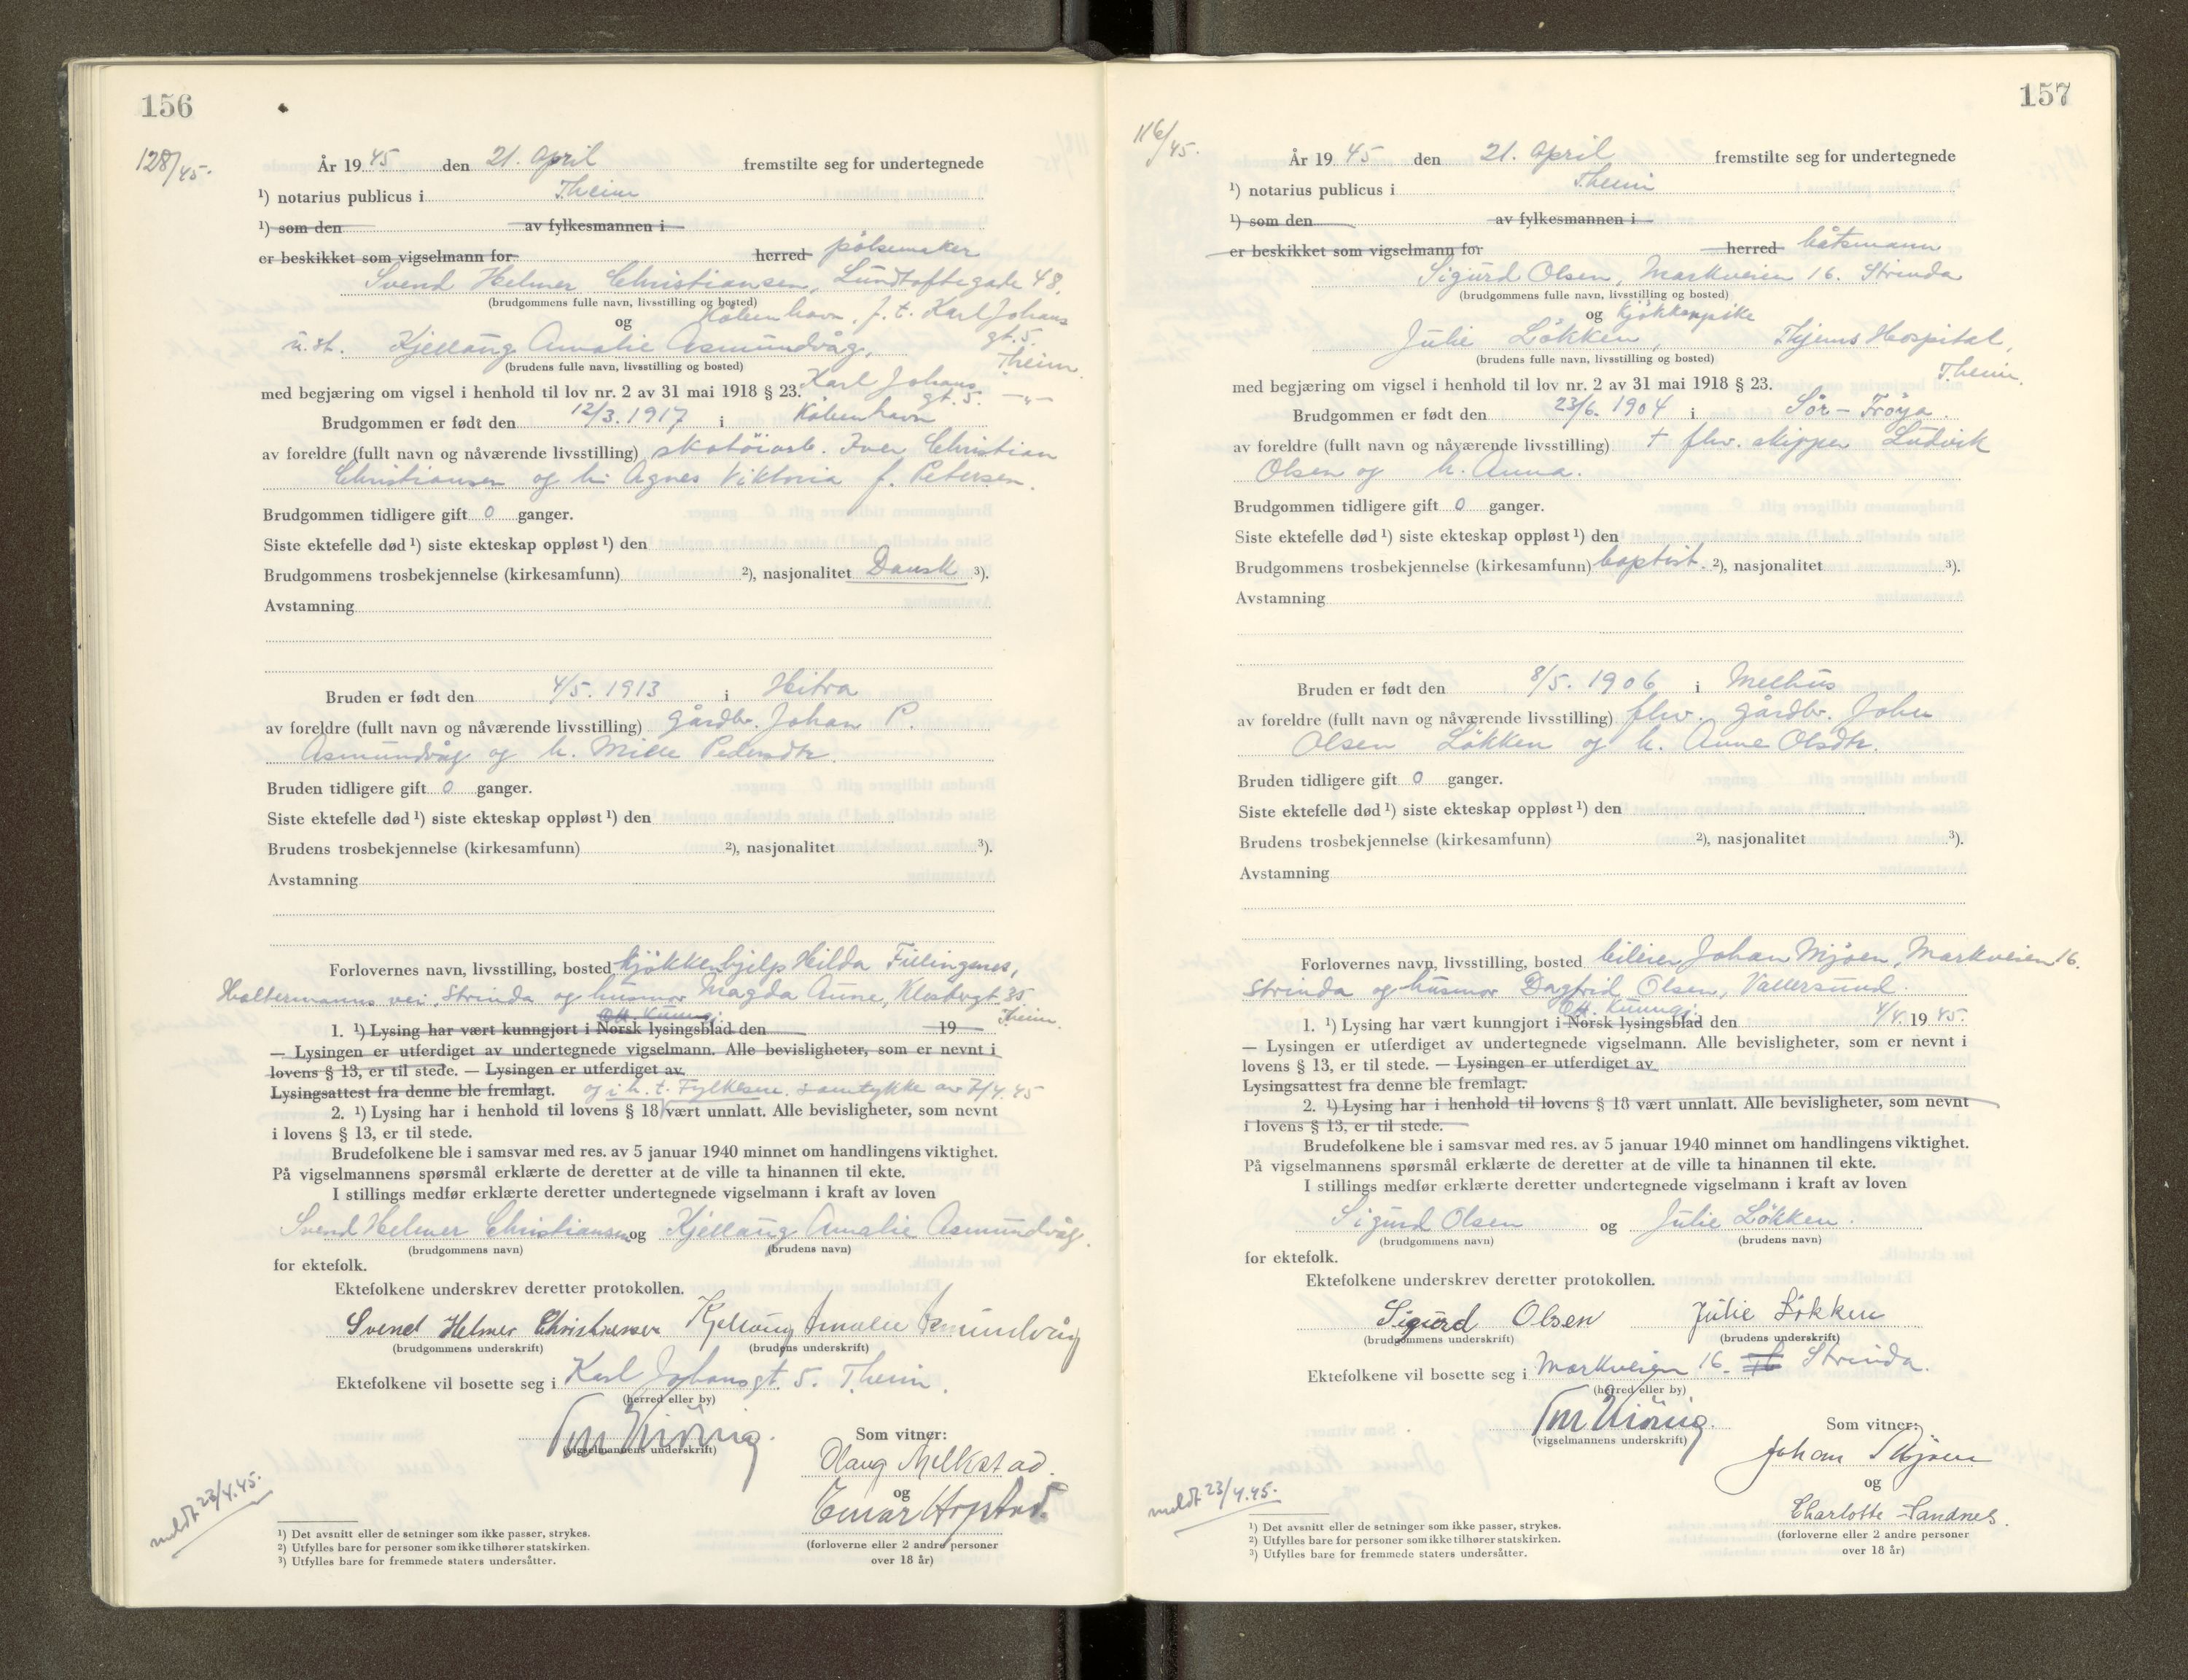 156
128/45.
År 1945 den 21. april fremstilte seg for undertegnede
¹) notarius publicus i Th.eim
¹) som den av fylkesmannen i
er beskikket som vigselmann for herred pølsemaker
Svend Helmer Christiansen, Lundtoftegade 48,
(brudgommens fulle navn, livsstilling og bosted)
København, f. t. Karl Johans
og gt. 5.
u.st. Kjellaug Amalie Asmundvåg, Th.eim.
(brudens fulle navn, livsstilling og bosted)
Karl Johans
med begjæring om vigsel i henhold til lov nr. 2 av 31 mai 1918 § 23. gt. 5. —"—
Brudgommen er født den 12/3. 1917 i København
av foreldre (fullt navn og nåværende livsstilling) skotöiarb. Iver Christian
Christiansen og h. Agnes Viktoria f. Petersen.
Brudgommen tidligere gift 0 ganger.
Siste ektefelle død ¹) siste ekteskap oppløst ¹) den
Brudgommens trosbekjennelse (kirkesamfunn) ²), nasjonalitet Dansk ³).
Avstamning
Bruden er født den 4/5. 1913 i Hitra
av foreldre (fullt navn og nåværende livsstilling) gårdbr. Johan P.
Asmundvåg og h. Mille Pedersdtr.
Bruden tidligere gift 0 ganger.
Siste ektefelle død ¹) siste ekteskap oppløst ¹) den
Brudens trosbekjennelse (kirkesamfunn) ²), nasjonalitet ³).
Avstamning
Forlovernes navn, livsstilling, bosted kjøkkenhjelp Hilda Fillingsnes,
Haltermanns vei, Strinda og husmor Magda Aune, Klostergt. 35.
Off. kunngj. Th.eim.
1. ¹) Lysing har vært kunngjort i Norsk lysingsblad den 19
— Lysingen er utferdiget av undertegnede vigselmann. Alle bevisligheter, som er nevnt i
lovens § 13, er til stede. — Lysingen er utferdiget av
Lysingsattest fra denne ble fremlagt. og i h. t. Fylkesm. samtykke av 7/4.45
2. ¹) Lysing har i henhold til lovens § 18 vært unnlatt. Alle bevisligheter, som nevnt
i lovens § 13, er til stede.
Brudefolkene ble i samsvar med res. av 5 januar 1940 minnet om handlingens viktighet.
På vigselmannens spørsmål erklærte de deretter at de ville ta hinannen til ekte.
I stillings medfør erklærte deretter undertegnede vigselmann i kraft av loven
Svend Helmer Christiansen og Kjellaug Amalie Asmundvåg.
(brudgommens navn) (brudens navn)
for ektefolk.
Ektefolkene underskrev deretter protokollen.
Svend Helmer Christiansen Kjellaug Amalie Asmundvåg
(brudgommens underskrift) (brudens underskrift)
Ektefolkene vil bosette seg i Karl Johansgt. 5. Th.eim.
(herred eller by)
(vigselmannens underskrift)
Som vitner:
Olaug Melkstad.
og
Einar Hopstad.
(forloverne eller 2 andre personer
over 18 år)
meldt 23/4.45.
¹) Det avsnitt eller de setninger som ikke passer, strykes.
²) Utfylles bare for personer som ikke tilhører statskirken.
³) Utfylles bare for fremmede staters undersåtter.
157
116/45.
År 1945 den 21. april fremstilte seg for undertegnede
¹) notarius publicus i Th.eim
¹) som den av fylkesmannen i
er beskikket som vigselmann for herred båtsmann
Sigurd Olsen, Markveien 16. Strinda
(brudgommens fulle navn, livsstilling og bosted)
og kjøkkenpike
Julie Løkken, Th.jems Hospital,
(brudens fulle navn, livsstilling og bosted) Th.eim.
med begjæring om vigsel i henhold til lov nr. 2 av 31 mai 1918 § 23.
Brudgommen er født den 23/6. 1904 i Sör-Fröya.
av foreldre (fullt navn og nåværende livsstilling) + fhv. skipper Ludvik
Olsen og h. Anna.
Brudgommen tidligere gift 0 ganger.
Siste ektefelle død ¹) siste ekteskap oppløst ¹) den
Brudgommens trosbekjennelse (kirkesamfunn) baptist. ²), nasjonalitet ³).
Avstamning
Bruden er født den 8/5. 1906 i Melhus
av foreldre (fullt navn og nåværende livsstilling) fhv. gårdbr. John
Olsen Løkken og h. Anne Olsdtr.
Bruden tidligere gift 0 ganger.
Siste ektefelle død ¹) siste ekteskap oppløst ¹) den
Brudens trosbekjennelse (kirkesamfunn) ²), nasjonalitet ³).
Avstamning
Forlovernes navn, livsstilling, bosted bileier Johan Mjøen, Markveien 16.
Strinda og husmor Dagfrid Olsen, Vallersund.
Off. kunngj.
1. ¹) Lysing har vært kunngjort i Norsk lysingsblad den 4/4. 1945.
— Lysingen er utferdiget av undertegnede vigselmann. Alle bevisligheter, som er nevnt i
lovens § 13, er til stede. — Lysingen er utferdiget av
Lysingsattest fra denne ble fremlagt.
2. ¹) Lysing har i henhold til lovens § 18 vært unnlatt. Alle bevisligheter, som nevnt
i lovens § 13, er til stede.
Brudefolkene ble i samsvar med res. av 5 januar 1940 minnet om handlingens viktighet.
På vigselmannens spørsmål erklærte de deretter at de ville ta hinannen til ekte.
I stillings medfør erklærte deretter undertegnede vigselmann i kraft av loven
Sigurd Olsen og Julie Løkken.
(brudgommens navn) (brudens navn)
for ektefolk.
Ektefolkene underskrev deretter protokollen.
Sigurd Olsen Julie Løkken
(brudgommens underskrift) (brudens underskrift)
Ektefolkene vil bosette seg i Markveien 16. Strinda.
(herred eller by)
(vigselmannens underskrift)
Som vitner:
Johan Mjøen
og
Charlotte Sandnes.
(forloverne eller 2 andre personer
over 18 år)
meldt 23/4.45.
¹) Det avsnitt eller de setninger som ikke passer, strykes.
²) Utfylles bare for personer som ikke tilhører statskirken.
³) Utfylles bare for fremmede staters undersåtter.